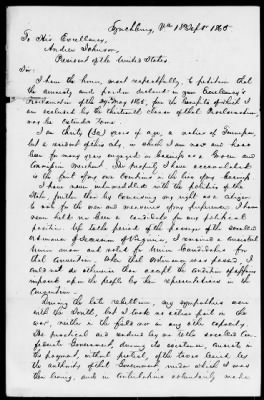 Lynchburg, Va 13 Sept 1865
To His Excellency,
Andrew Johnson,
President of the United States
Sir:
I have the honor, most respectfully, to petition that
the amnesty and pardon declared in your Excellency's
Proclamation of the 29th May 1865, from the benefits of which I
am excluded by the thirteenth clause of that Proclamation,
may be extended to me.
I am thirty (30) years of age, a native of
but a resident of this city, in which I am now and have
been for many years engaged in business as a Grocer and
Commission Merchant. The property I have accumulated
is the fruit of my own exertions in this line of my business
I have never intermeddled with the politics of the
State, further than by exercising my right as a citizen
to vote for the men and measures of my preference. I have
never held, nor been a candidate for any political
position. Up to the period of the passage of the
Ordinance of Secession of Virginia, I remained a consistent
Union man and voted for Union Candidates for
that Convention. When that ordinance was passed, I
could not do otherwise than accept the condition of affairs
imposed upon the people by their representatives in the
Convention.
During the late rebellion, my sympathies were
with the South, but I took no active part in the
war, neither in the field nor in any other capacity.
The practical aid rendered by me to the so called Con-
federate Government, during its existence, consists in
the payment, without protest, of the taxes levied by
the authority of that Government, under which I was
then living, and in contributions voluntarily made